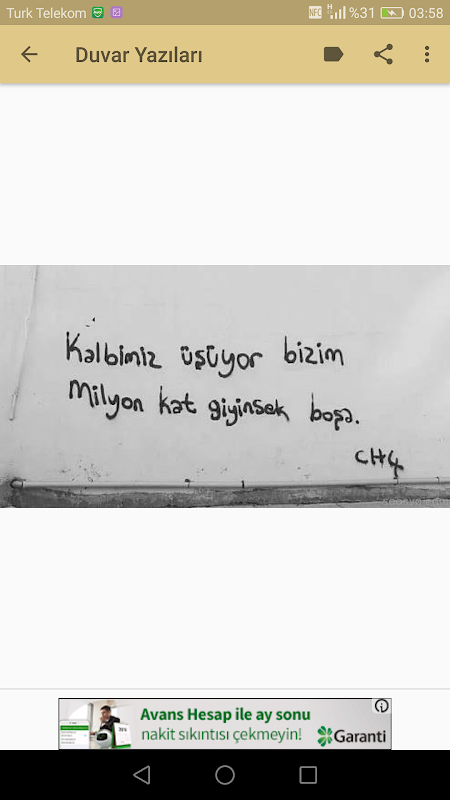 Turk Telekom
NFC H %31 03:58
Duvar Yazıları
Kalbimiz üşüyor bizim
Milyon kat giyinsek boşa.
CH4
Avans Hesap ile ay sonu
nakit sıkıntısı çekmeyin!
Garanti